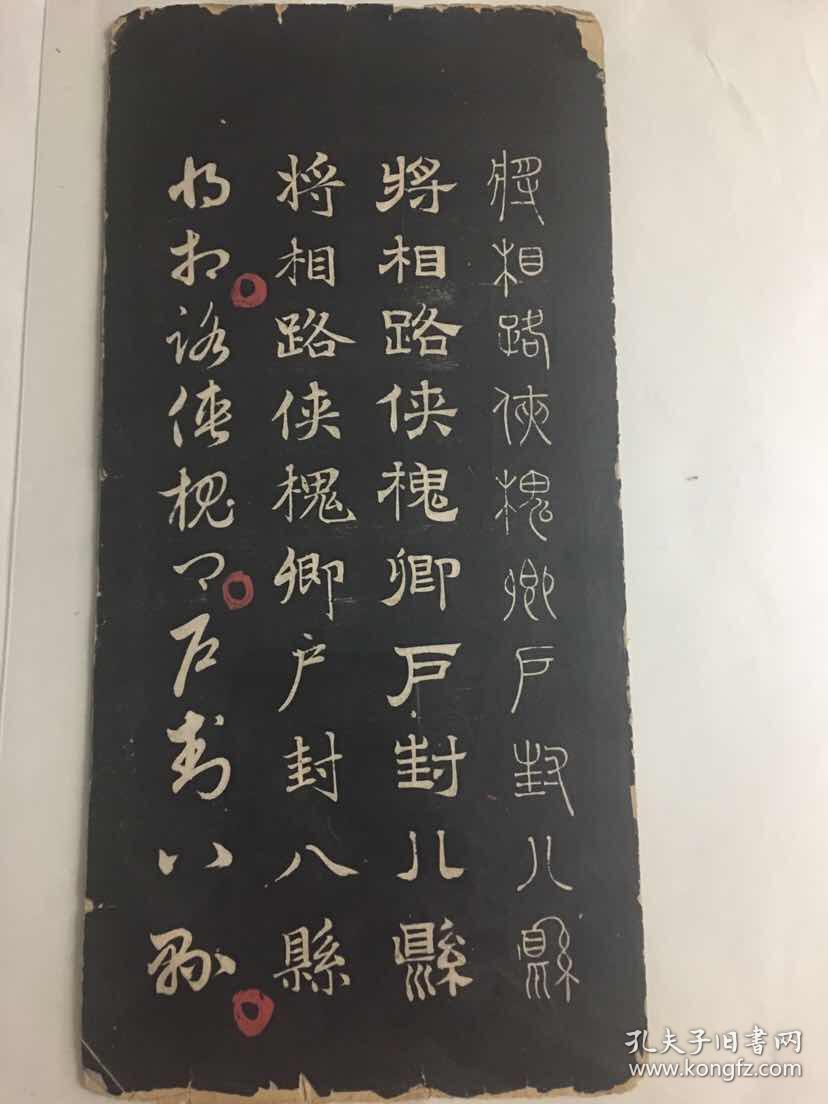 將相路俠槐卿戶封八縣
將相路俠槐卿戶封八縣
將相路俠槐卿户封八縣
將相路俠槐卿户封八縣
孔夫子旧书网
www.kongfz.com